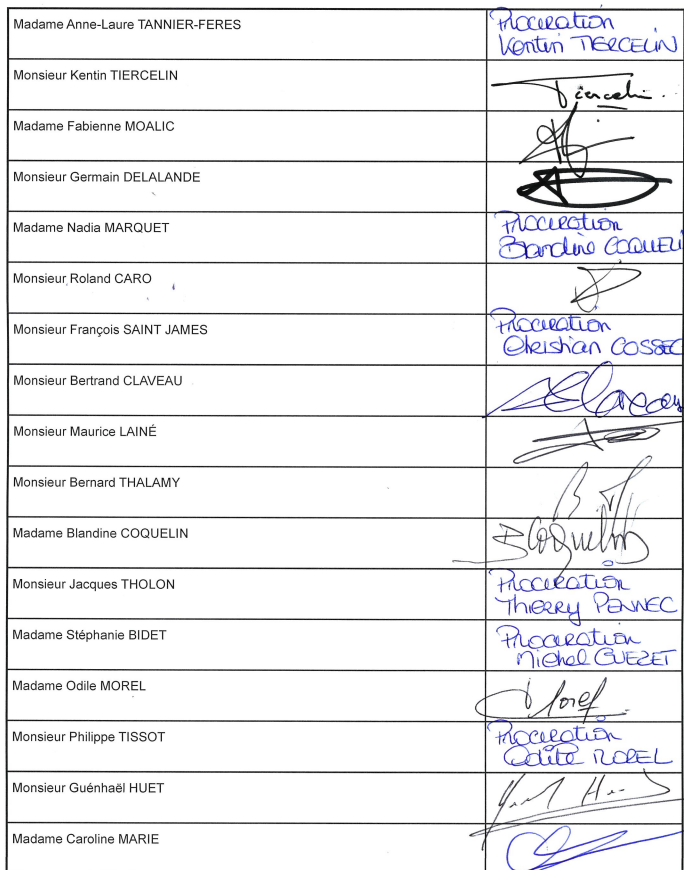 Madame Anne-Laure TANNIER-FERES
Procuration
Kentin TIERCELIN
Monsieur Kentin TIERCELIN
Tiercelin
Madame Fabienne MOALIC
Monsieur Germain DELALANDE
Madame Nadia MARQUET
Procuration
Blandine COQUELI
Monsieur Roland CARO
Monsieur François SAINT JAMES
Procuration
Christian COSSEC
Monsieur Bertrand CLAVEAU
Monsieur Maurice LAINÉ
Monsieur Bernard THALAMY
B. T
Madame Blandine COQUELIN
BCoquelin
Monsieur Jacques THOLON
Procuration
Thierry PENNEC
Madame Stéphanie BIDET
Procuration
Michel GUEZET
Madame Odile MOREL
Morel
Monsieur Philippe TISSOT
Procuration
Odile MOREL
Monsieur Guénhaël HUET
Madame Caroline MARIE